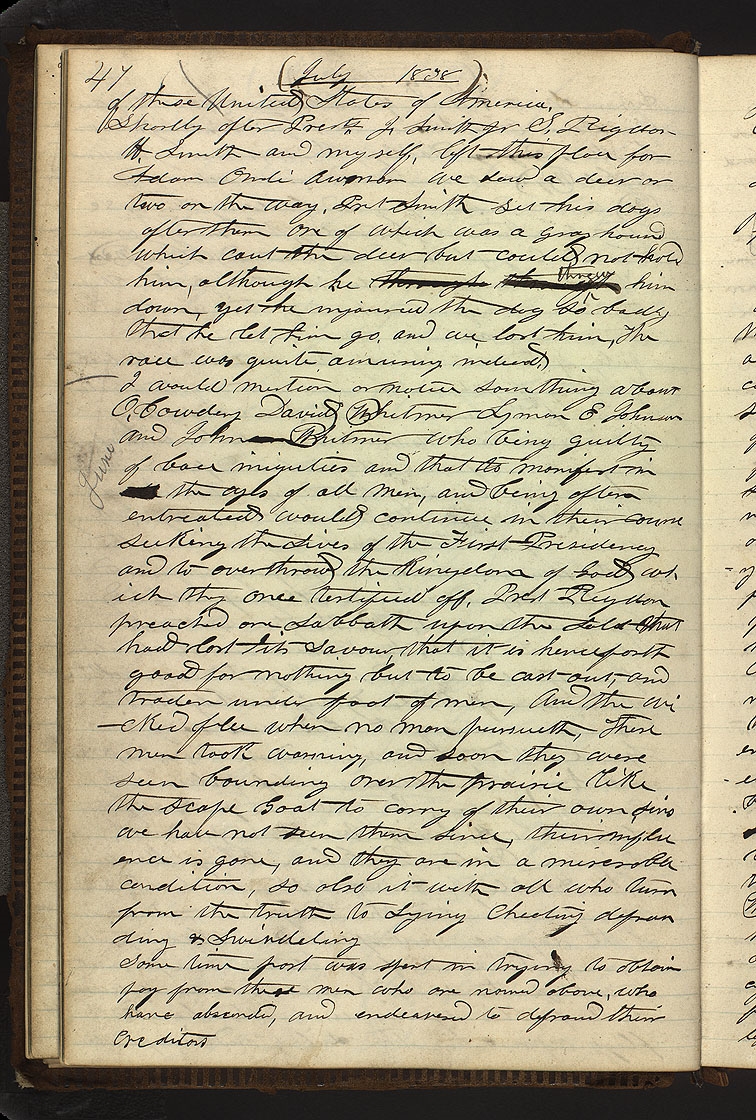 47 (July 1838)
of these United States of America.
Shortly after Prest. J. Smith jr S. Rigdon
H. Smith and myself, left this place for
Adam Ondi Awman we saw a deer or
two on the way, Prst Smith set his dogs
after them one of which was a gray hound
which caut the deer but could not hold
him, although he threw him
down, yet he injuried the dog so badly
that he let him go, and we lost him, The
race was quite amusing indeed.
I would mention or notice something about
O. Cowdery David Whitmer Lyman E Johnson
and John Whitmer who being guilty
of base iniquities and that to manifest in
the eyes of all men, and being often
entreated would continue in their course
seeking the Lives of the First Presidency
and to overthrow the Kingdom of God wh-
ich they once testified off. Prest Rigdon
preached one Sabbath upon the salt that
had lost its savour, that it is henceforth
good for nothing but to be cast out, and
troden under foot of men, And the wi-
cked flee when no man pursueth, These
men took warning, and soon they were
seen bounding over the prairie like
the scape Goat to carry of their own sins
we have not seen them since, their influ
ence is gone, and they are in a miserable
condition, so also it with all who turn
from the truth to Lying Cheating defrau
ding & Swindeling
Some time past was spent in trying to obtain
pay from these men who are named above, who
have absconded, and endeavered to defraud their
creditors
June